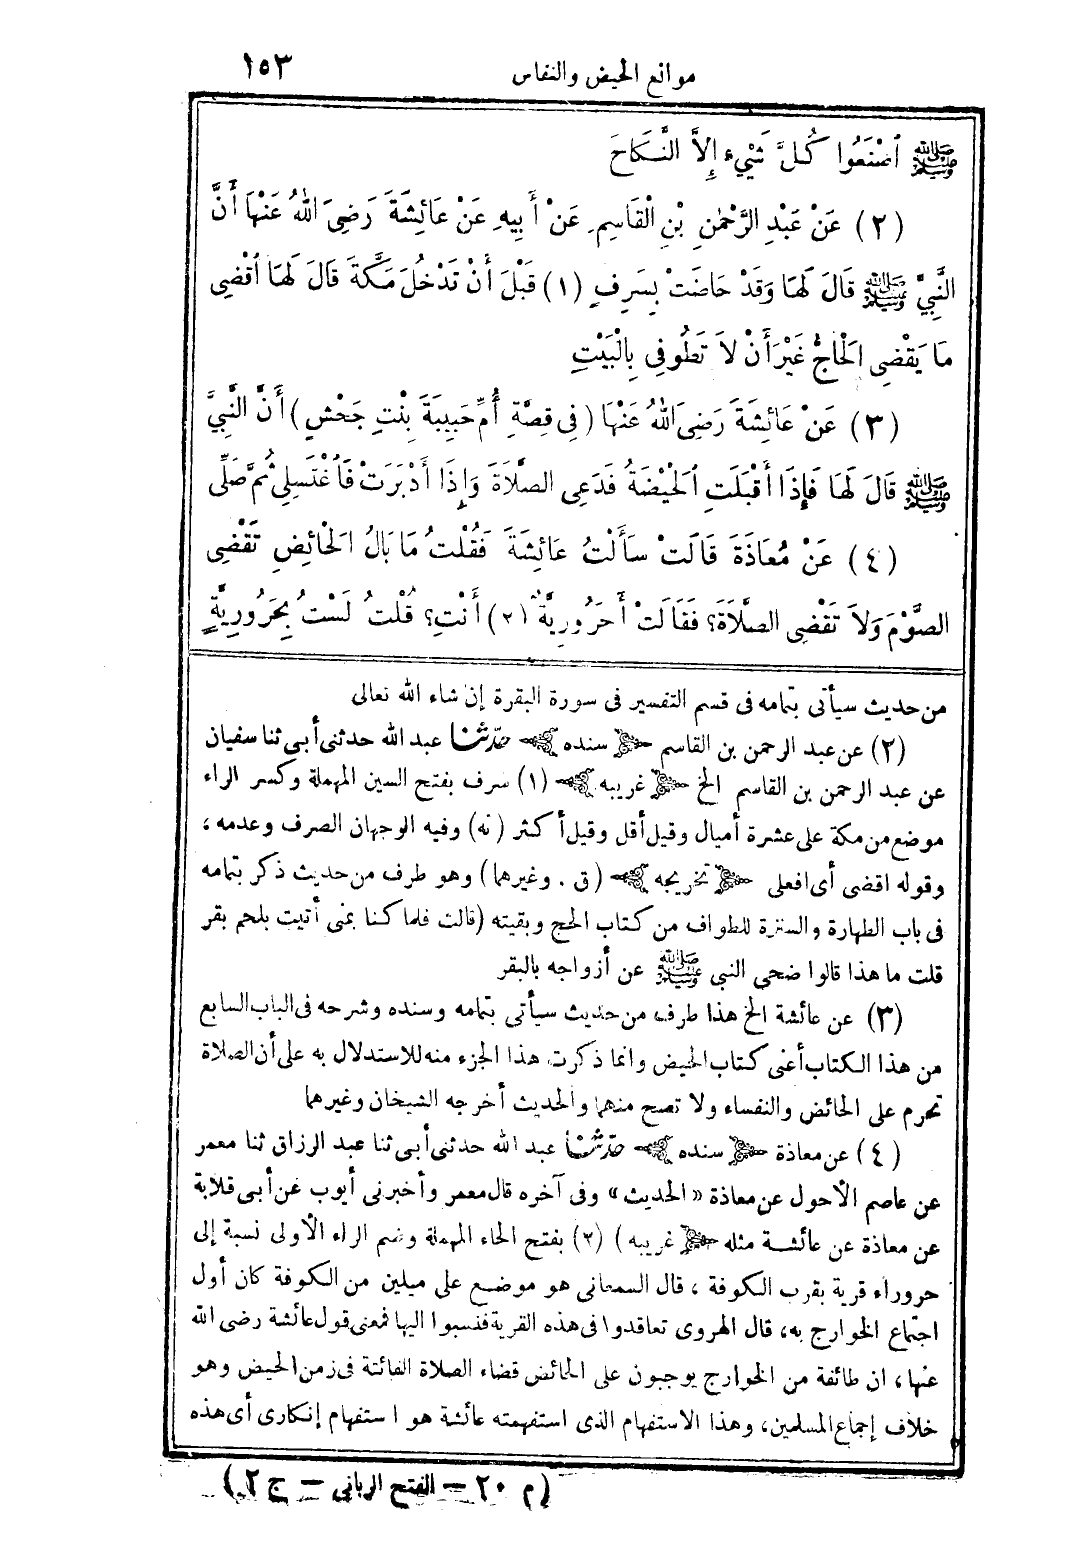 موانع الحيض والنفاس ١٥٣
ﷺ اُصْنَعُوا كُلَّ شَيْءٍ إِلاَّ النِّكَاحَ
(٢) عَنْ عَبْدِ الرَّحْمٰنِ بْنِ الْقَاسِمِ عَنْ أَبِيهِ عَنْ عَائِشَةَ رَضِيَ اللهُ عَنْهَا أَنَّ
النَّبِيَّ ﷺ قَالَ لَهَا وَقَدْ حَاضَتْ بِسَرِفٍ (١) قَبْلَ أَنْ تَدْخُلَ مَكَّةَ قَالَ لَهَا اُقْضِى
مَا يَقْضِى الْحَاجُّ غَيْرَ أَنْ لاَ تَطُوفِى بِالْبَيْتِ
(٣) عَنْ عَائِشَةَ رَضِىَ اللهُ عَنْهَا (فِى قِصَّةِ أُمِّ حَبِيبَةَ بِنْتِ جَحْشٍ) أَنَّ النَّبِيَّ
ﷺ قَالَ لَهَا فَإِذَا أَقْبَلَتِ اُلْحَيْضَةُ فَدَعِى الصَّلاَةَ وَإِذَا أَدْبَرَتْ فَاُغْتَسِلِى ثُمَّ صَلِّى
(٤) عَنْ مُعَاذَةَ قَالَتْ سَأَلْتُ عَائِشَةَ فَقُلْتُ مَا بَالُ الْحَائِضِ تَقْضِى
الصَّوْمَ وَلاَ تَقْضِى الصَّلاَةَ؟ فَقَالَتْ أَحَرُورِيَّةٌ (٢) أَنْتِ؟ قُلْتُ لَسْتُ بِحَرُورِيَّةٍ
من حديث سيأتى بتمامه فى قسم التفسير فى سورة البقرة إن شاء الله تعالى
(٢) عن عبد الرحمن بن القاسم ﴿سنده﴾ حدّثنا عبد الله حدثنى أبى ثنا سفيان
عن عبد الرحمن بن القاسم الخ ﴿غريبه﴾ (١) سرف بفتح السين المهملة وكسر الراء
موضع من مكة على عشرة أميال وقيل أقل وقيل أكثر (نه) وفيه الوجهان الصرف وعدمه ،
وقوله اقضى أى افعلى ﴿تخريجه﴾ (ق . وغيرهما) وهو طرف من حديث ذكر بتمامه
فى باب الطهارة والسترة للطواف من كتاب الحج وبقيته (قالت فلما كنا بمنى أتيت بلحم بقر
قلت ما هذا قالوا ضحى النبى ﷺ عن أزواجه بالبقر
(٣) عن عائشة الخ هذا طرف من حديث سيأتى بتمامه وسنده وشرحه فى الباب السابع
من هذا الكتاب أعنى كتاب الحيض وانما ذكرت هذا الجزء منه للاستدلال به على أن الصلاة
تحرم على الحائض والنفساء ولا تصح منهما والحديث أخرجه الشيخان وغيرهما
(٤) عن معاذة ﴿سنده﴾ حدّثنا عبد الله حدثنى أبى ثنا عبد الرزاق ثنا معمر
عن عاصم الأحول عن معاذة «الحديث» وفى آخره قال معمر وأخبرنى أيوب عن أبى قلابة
عن معاذة عن عائشة مثله ﴿غريبه) (٢) بفتح الحاء المهملة وضم الراء الأولى نسبة إلى
حروراء قرية بقرب الكوفة ، قال السمعانى هو موضع على ميلين من الكوفة كان أول
اجتماع الخوارج به، قال الهروى تعاقدوا فى هذه القرية فنسبوا اليها فمعنى قول عائشة رضى الله
عنها، ان طائفة من الخوارج يوجبون على الحائض قضاء الصلاة الفائتة فى زمن الحيض وهو
خلاف إجماع المسلمين، وهذا الاستفهام الذى استفهمته عائشة هو استفهام إنكارى أى هذه
(م ٢٠ — الفتح الربانى — ج ٢)